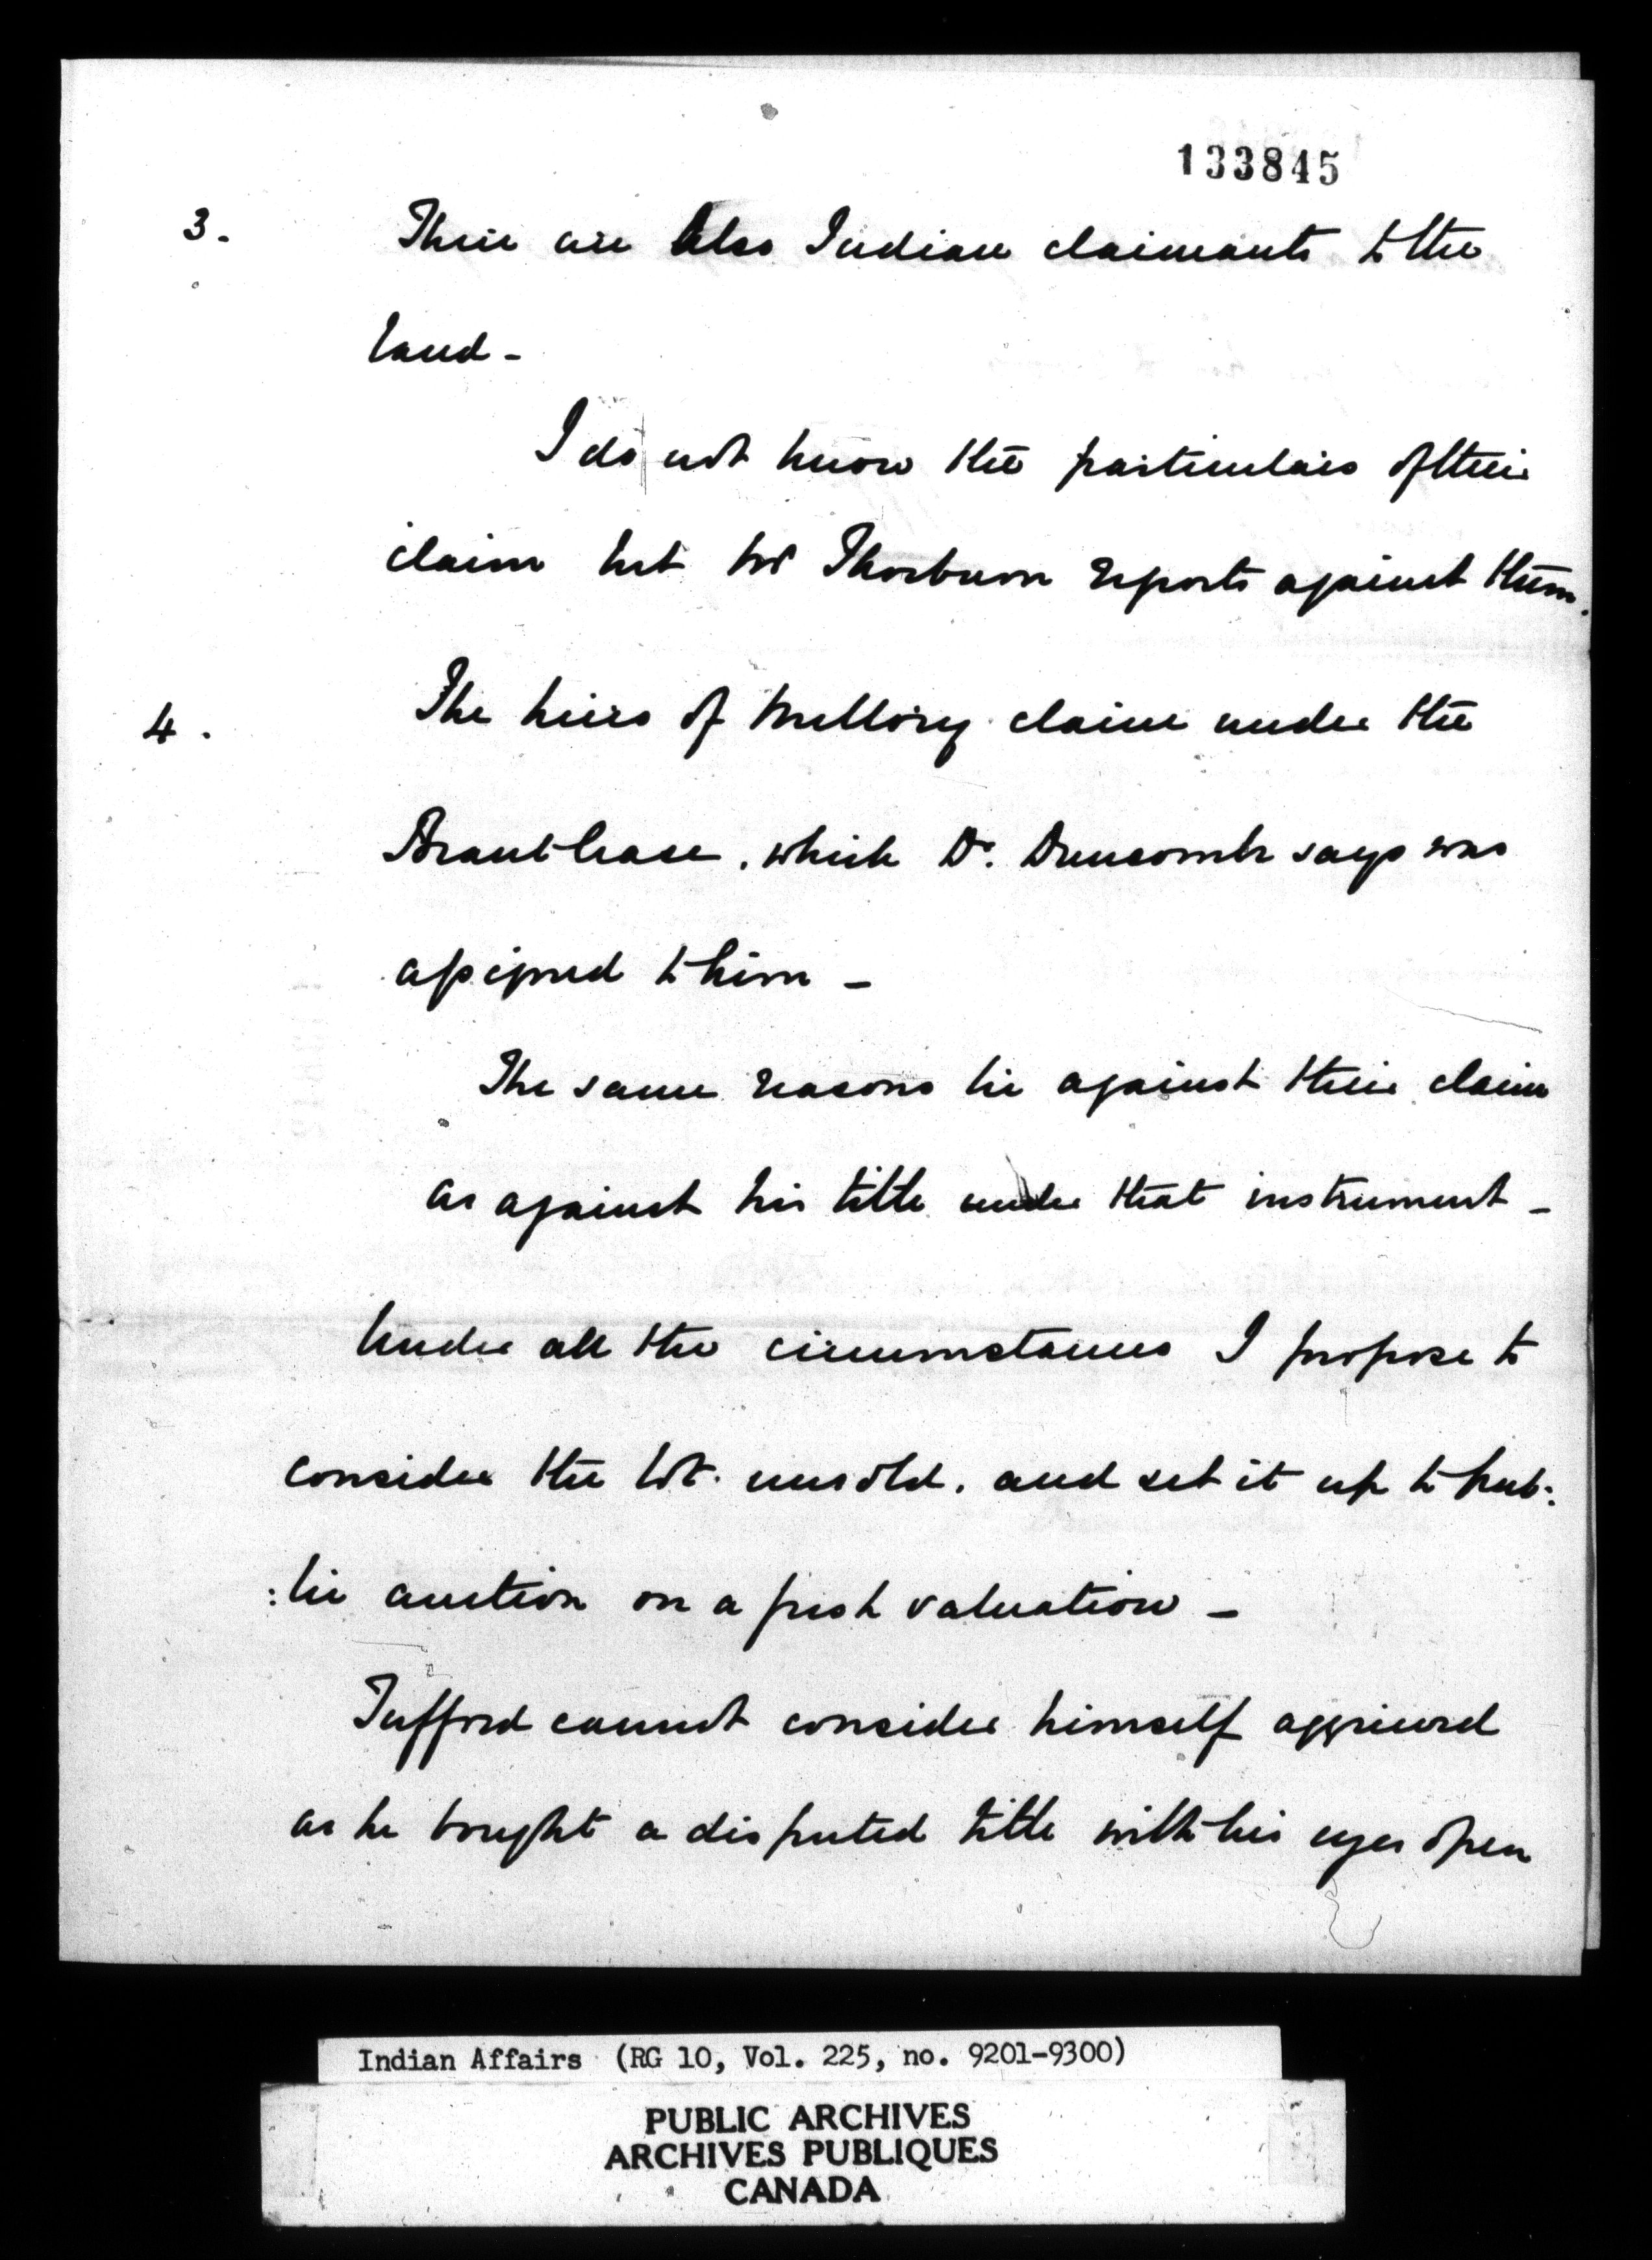 133845
3. There are also Indian claimants to the
land -
I do not know the particulars of their
claim but Mr Thorburn reports against them.
4. The heirs of Mallory claim under the
Brant lease, which Dr. Duncombe says was
assigned to him -
The same reasons lie against their claim
as against his title under that instrument -
Under all the circumstances I propose to
consider the lot unsold, and set it up to pub:
:lic auction on a fresh valuation -
Tufford cannot consider himself aggrieved
as he bought a disputed title with his eyes open
Indian Affairs (RG 10, Vol. 225, no. 9201-9300)
PUBLIC ARCHIVES
ARCHIVES PUBLIQUES
CANADA